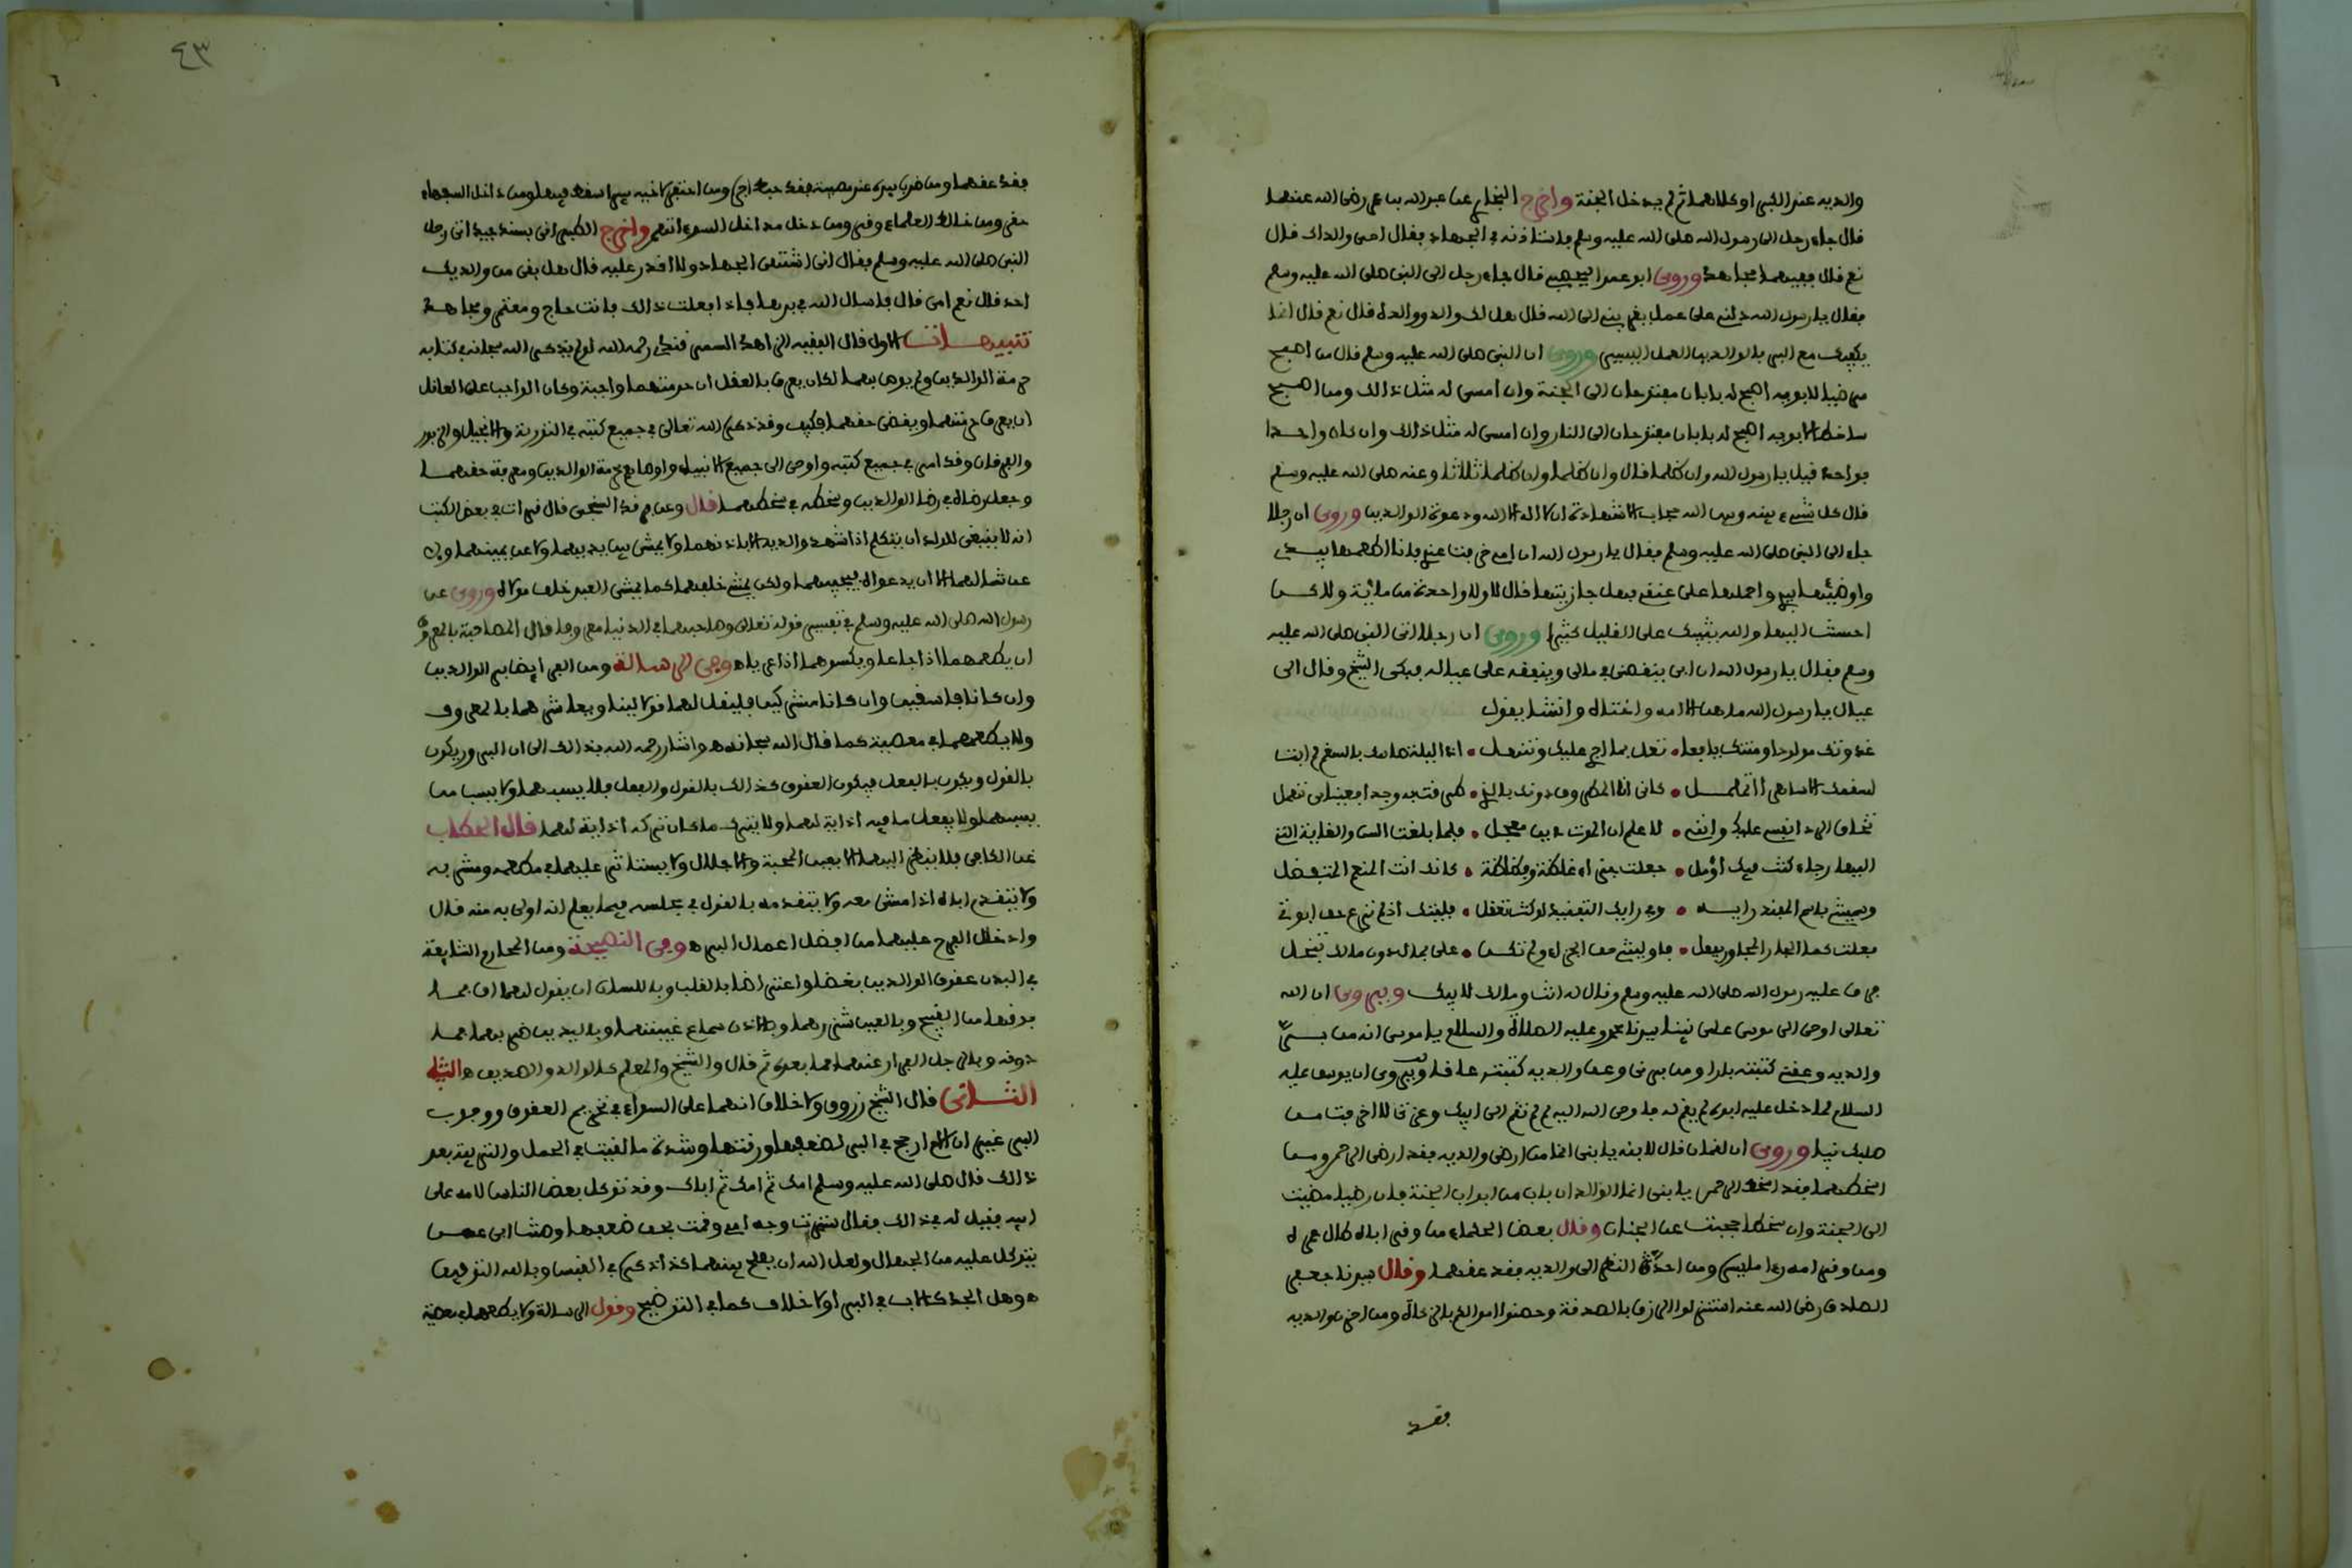 والديه عند الكبر او كلاهما ثم لم يدخل الجنة واخرج البخاري عن عبد الله بن عمر رضي الله عنهما
قال جاء رجل الى رسول الله صلى الله عليه وسلم فاستاذنه في الجهاد فقال احي والداك قال
نعم قال ففيهما فجاهد وروى ابو عمر قال جاء رجل الى النبي صلى الله عليه وسلم
فقال يا رسول الله دلني على عمل يقربني الى الله قال هل لك والد ووالدة قال نعم قال انما
يكفيك مع البر بالوالدين العمل اليسير وروى ان النبي صلى الله عليه وسلم قال من اصبح
مرضيا لابويه اصبح له بابان مفتوحان الى الجنة وان امسى له مثل ذالك ومن اصبح
ساخطا لابويه اصبح له بابان مفتوحان الى النار وان امسى له مثل ذالك وان كان واحدا
فواحد قيل يا رسول الله وان ظلما قال وان ظلما وان ظلما ثلاثا وعنه صلى الله عليه وسلم
قال كل شيء بينه وبين الله حجاب الا شهادة ان لا اله الا الله ودعوة الوالدين وروى ان رجلا
جاء الى النبي صلى الله عليه وسلم فقال يا رسول الله ان امي خرفت عندي فانا اطعمها بيدي
واوضئها بيدي واحملها على عنقي فهل جازيتها قال لا ولا واحدة من مائة ولكن
احسنت اليها والله يثيبك على القليل كثيرا وروى ان رجلا اتى النبي صلى الله عليه
وسلم فقال يا رسول الله ان ابي ينقصني مالي وينفقه على عياله فبكى الشيخ وقال اى
عيال يا رسول الله ما هن الا امه واختاه وانشا يقول
غذوتك مولودا ومنتك يافعا • تعل بما اجري عليك وتنهل • اذا ليلة ضافتك بالسقم لم ابت
لسقمك الا ساهرا اتململ • كاني انا المطروق دونك بالذي • طرقت به وجدا فعيناي تهمل
تخاف الردى نفسي عليك وانني • لا علم ان الموت دين معجل • فلما بلغت السن والغاية التي
اليها رجاء كنت فيك اؤمل • جعلت جزاءي غلظة وفظاظة • كانك انت المنعم المتفضل
وسميتني باسم المفند رايه • وفي رايك التفنيد لو كنت تعقل • فليتك اذ لم ترع حق ابوتي
فعلت كما الجار المجاور يفعل • فاوليتني حق الجوار ولم تكن • علي بمال دون مالك تبخل
فرق عليه رسول الله صلى الله عليه وسلم وقال له انت ومالك لابيك ويروى ان الله
تعالى اوحى الى موسى على نبينا سيدنا محمد وعليه الصلاة والسلام يا موسى انه من بر
والديه وعقني كتبته بارا ومن برني وعق والديه كتبته عاقا ويروى ان يوسف عليه
السلام لما دخل عليه ابوه لم يقم له فاوحى الله اليه لم لم تقم الى ابيك وعزتي لا اخرجت من
صلبك نبيا وروى ان لقمان قال لابنه يا بني انما من ارضى والديه فقد ارضى الرحمن ومن
اسخطهما فقد اسخط الرحمن يا بني انما الوالدان باب من ابواب الجنة فان رضيا مضيت
الى الجنة وان سخطا حجبت عن الجنان وقال بعض العلماء من وقر اباه طال عمره
ومن وقر امه ومن احد النظر الى والديه فقد عقهما وقال سيدنا جعفر
الصادق رضي الله عنه استنزلوا الرزق بالصدقة وحصنوا اموالكم بالزكاة ومن احزن والديه
فقد
٤٣
فقد عقهما ومن ضرب يده عند مصيبة فقد حبط اجره ومن احتفر لاخيه بيرا سقط فيها ومن داخل السفهاء
حقر ومن خالط العلماء وقر ومن دخل مداخل السوء اتهم واخرج الطبراني بسند جيد اتى رجل
النبي صلى الله عليه وسلم فقال اني اشتهي الجهاد ولا اقدر عليه قال هل بقي من والديك
احد قال نعم امي قال فاسال الله في برها فاذا فعلت ذالك فانت حاج ومعتمر ومجاهد
تنبيهات الاول قال الفقيه ابي اهد السمرقندي رحمه الله لو لم يذكر الله سبحانه في كتابه
حرمة الوالدين ولم يوص بهما لكان يعرف بالعقل ان حرمتهما واجبة وكان الواجب على العاقل
ان يعرف حرمتهما ويقضي حقهما فكيف وقد ذكر الله تعالى في جميع كتبه في التورية والانجيل والزبور
والفرقان وقد امر في جميع كتبه واوحى الى جميع الانبياء واوصاهم بحرمة الوالدين ومعرفة حقهما
وجعل رضاه في رضا الوالدين وسخطه في سخطهما قال وعن فرقد السنجي قال قرات في بعض الكتب
انه لا ينبغي للولد ان يتكلم اذا شهد والديه الا باذنهما ولا يمشي بين يديهما ولا عن يمينهما ولا
عن شمالهما الا ان يدعواه فيجيبهما ولكن يمشي خلفهما كما يمشي العبد خلف مولاه وروى عن
رسول الله صلى الله عليه وسلم في تفسير قوله تعالى وصاحبهما في الدنيا معروفا قال المصاحبة بالمعروف
ان يطعمهما اذا جاعا ويكسوهما اذا عرياه وفي الرسالة ومن الفرائض بر الوالدين
وان كانا فاسقين وان كانا مشركين فليقل لهما قولا لينا ويعاشرهما بالمعروف
ولا يطعهما في معصية كما قال الله سبحانه ه واشار رحمه الله بذالك الى ان البرور يكون
بالقول ويكون بالفعل فيكون العقوق كذالك بالقول والفعل فلا يسبهما ولا يسب من
يسبهما ولا يفعل ما فيه اذاية لهما ولا يترك ما كان تركه اذاية لهما قال الحطاب
عن فلا ينظر اليهما الا بعين المحبة والاجلال ولا يستاثر عليهما في مطعمه ومشربه
ولا يتقدم اباه اذا مشى معه ولا يتقدمه بالقول في مجلسه فيما يعلم انه اولى به منه قال
وادخال الفرح عليهما من افضل اعمال البر ه وفي النصيحة ومن المحارم الشايعة
في البدن عقوق الوالدين بغضا واعتراضا بالقلب وباللسان ان يقول لهما اف فما
فوقها من القبيح وبالعين شزرهما وبالاذن سماع غيبتهما وباليدين ضربهما فما
دونه وبالرجل الفرار عنهما فما بعده ثم قال والشيخ والمعلم كالوالد والصديق ه
الثاني قال الشيخ زروق ولا خلاف انهما على السواء في تحريم العقوق ووجوب
البر غير ان الام ارجح في البر لضعفها ورقتها وشدة ما لقيت في الحمل والتربية بعد
ذالك قال صلى الله عليه وسلم امك ثم امك ثم اباك وقد توكل بعض الناس لامه على
ابيه فقيل له في ذالك فقال سترت وجه امي وقمت بحق ضعفها وصنت ابي عمن
يتوكل عليه من الجهال ولعل الله ان يصلح بينهما كذا ذكر في القبس وبالله التوفيق
ه وهل الجد كالاب في البر او لا خلاف كما في التوضيح وقول الرسالة ولا يطعهما في معصية